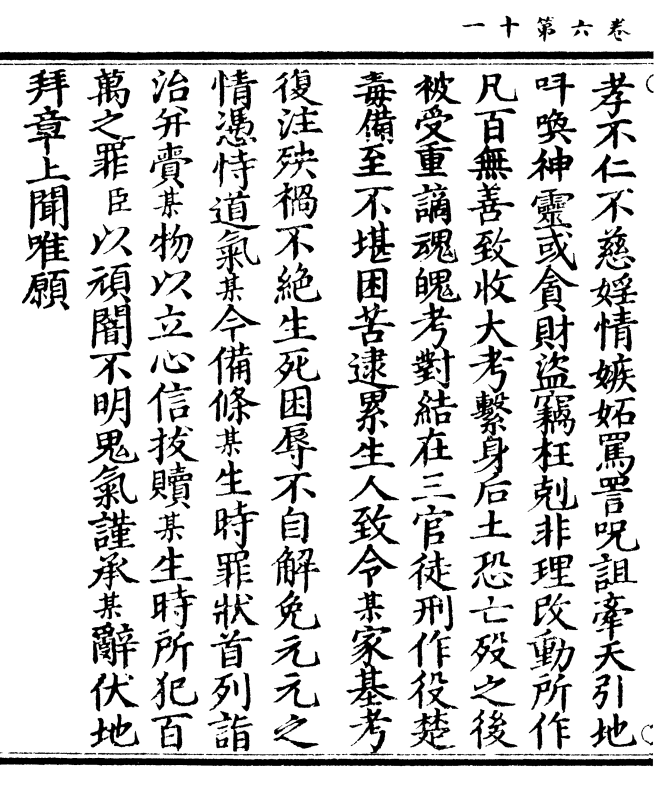 卷六第十一
孝不仁不慈婬情嫉妬罵詈呪詛牽天引地
呌喚神靈或貪財盜竊枉剋非理改動所作
凡百無善致收大考繫身后土恐亡歿之後
被受重謫魂魄考對結在三官徒刑作役楚
毒備至不堪困苦逮累生人致令某家基考
復注殃禍不絶生死困辱不自解免元元之
情憑恃道氣某今備條某生時罪狀首列詣
治并賷某物以立心信拔贖某生時所犯百
萬之罪臣以頑闇不明鬼氣謹承某辭伏地
拜章上聞唯願